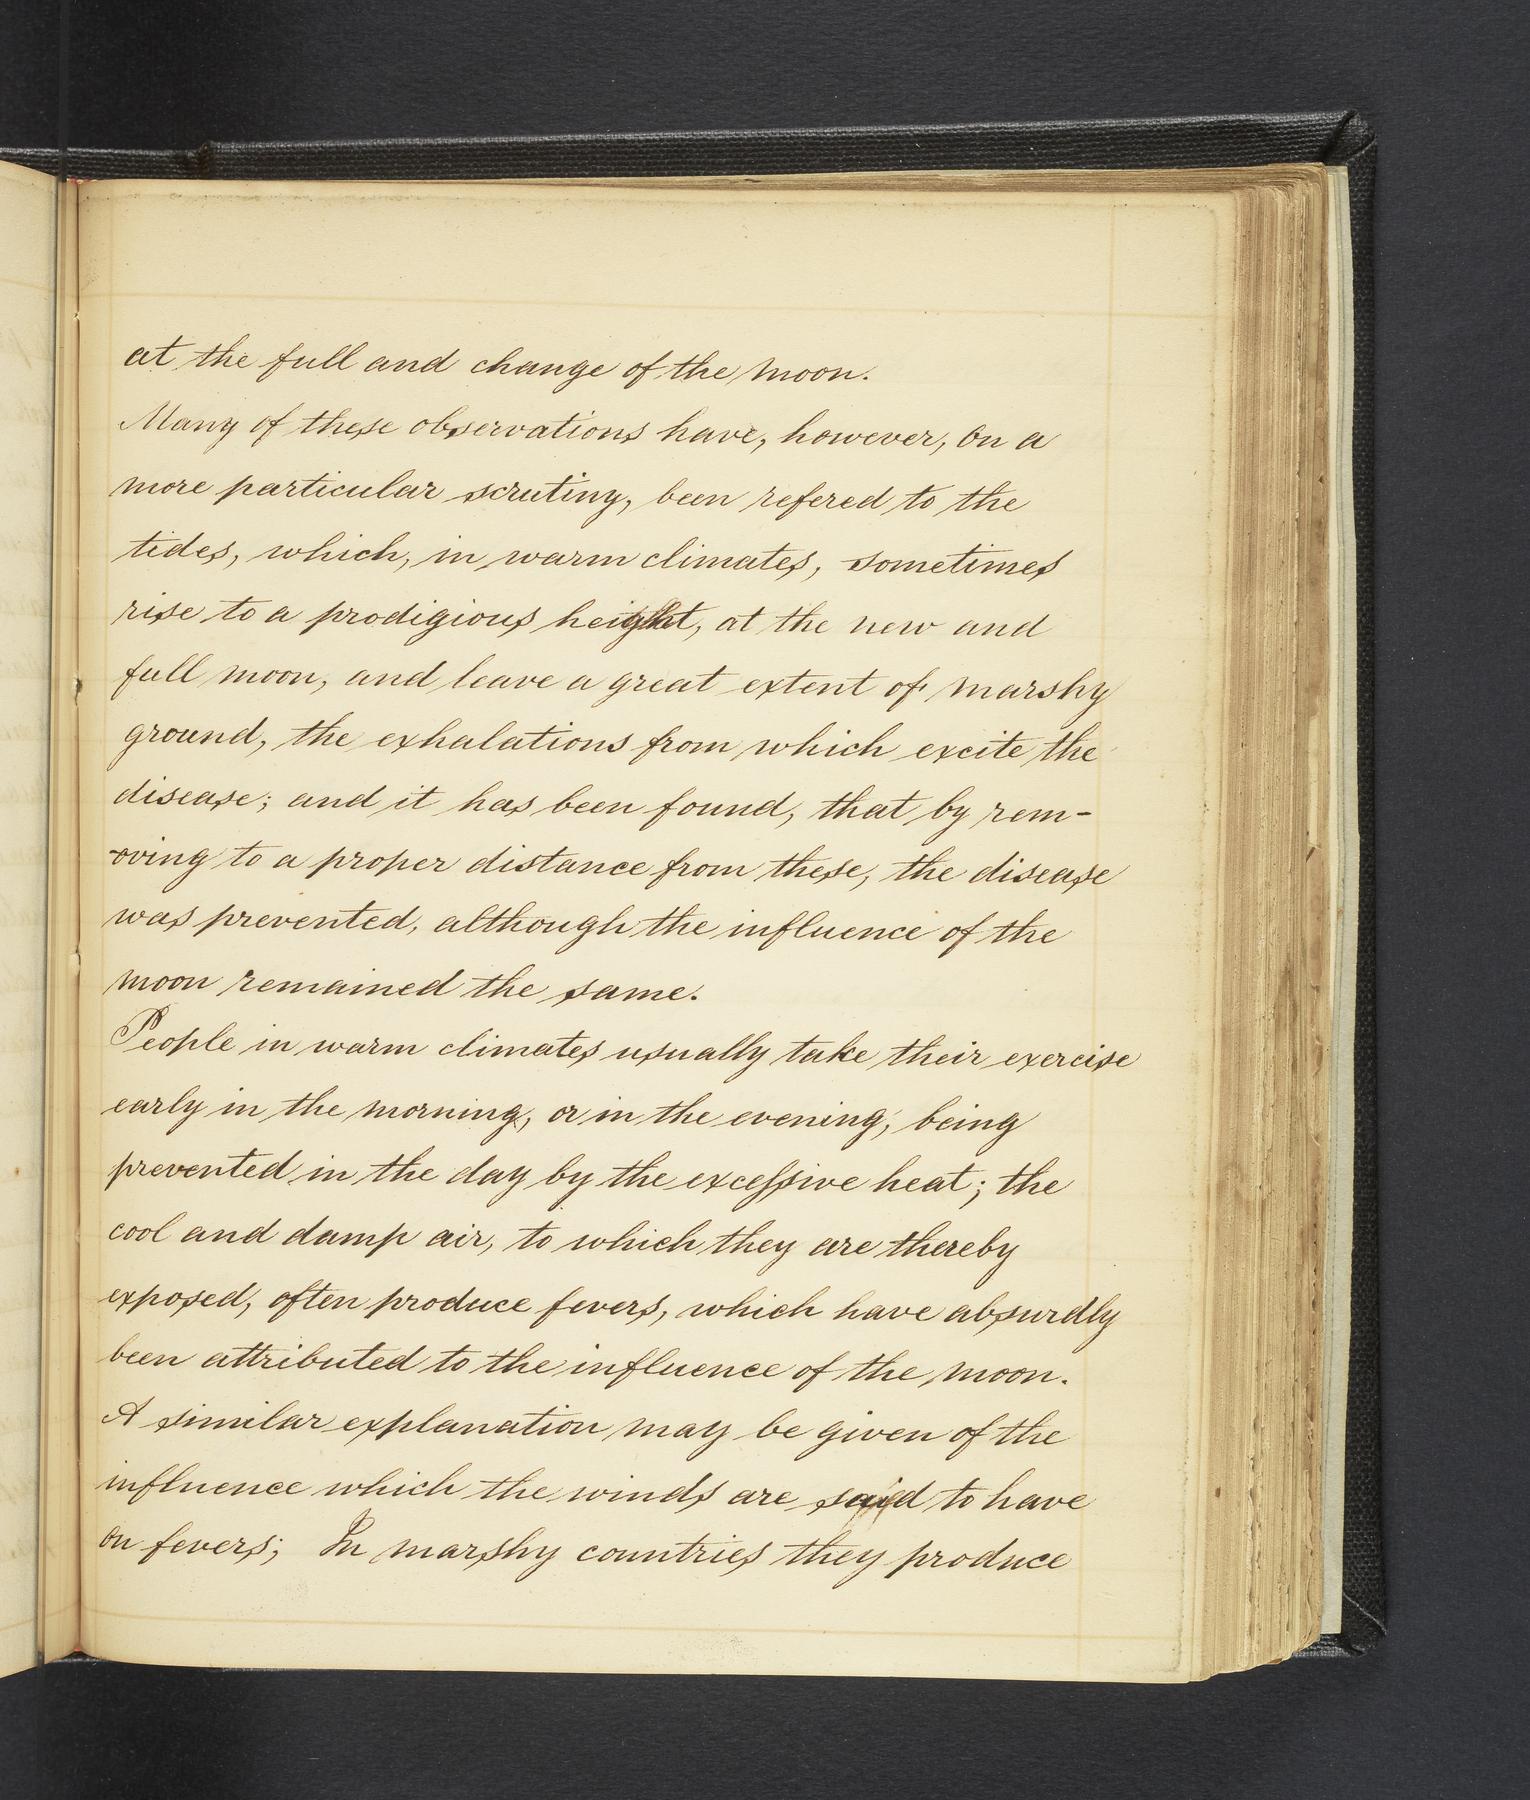 at the full and change of the moon.
Many of these observations have, however, on a
more particular scrutiny, been refered to the
tides, which, in warm climates, sometimes
rise to a prodigious height, at the new and
full moon, and leave a great extent of marshy
ground, the exhalations from which excite the
disease; and it has been found, that by rem-
-oving to a proper distance from these, the disease
was prevented, although the influence of the
moon remained the same.
People in warm climates usually take their exercise
early in the morning, or in the evening, being
prevented in the day by the excessive heat; the
cool and damp air, to which they are thereby
exposed, often produce fevers, which have absurdly
been attributed to the influence of the moon.
A similar explanation may be given of the
influence which the winds are said to have
on fevers; In marshy countries they produce